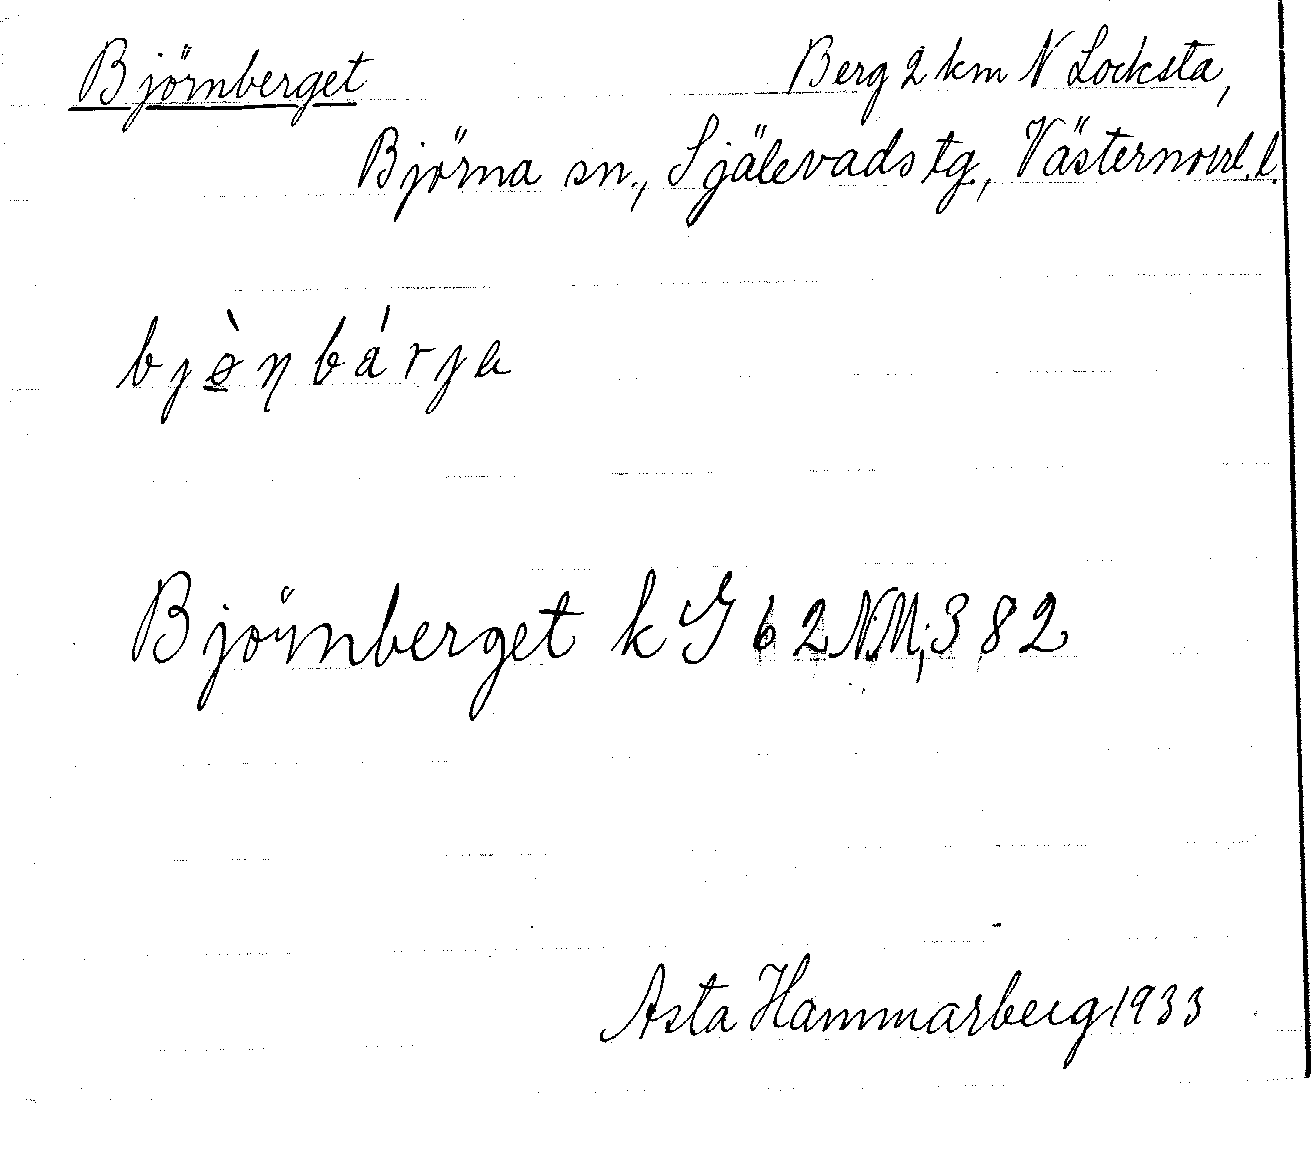 Björnberget Berg 2 km N Locksta,
Björna sn., Själevads tg., Västernorrl. l.
bjø̀ṇbárja
Björnberget k G 62 NM; 382
Asta Hammarberg 1933